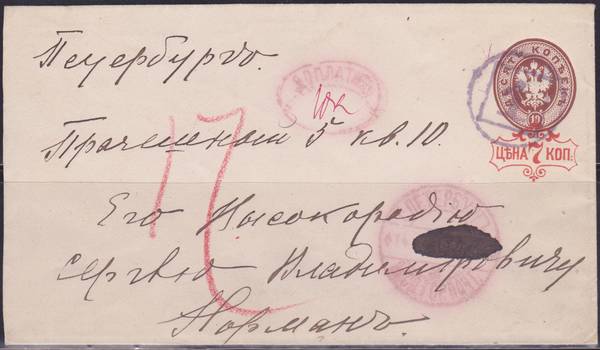 Петербургъ.
ДЕСЯТЬ КОПѢЕКЪ
10
ДОПЛАТИТЬ
10 к
ЦѢНА 7 КОП.
Прачешный 5 кв. 10.
Его Высокородію
Сергѣю Владимировичу
Норманъ.